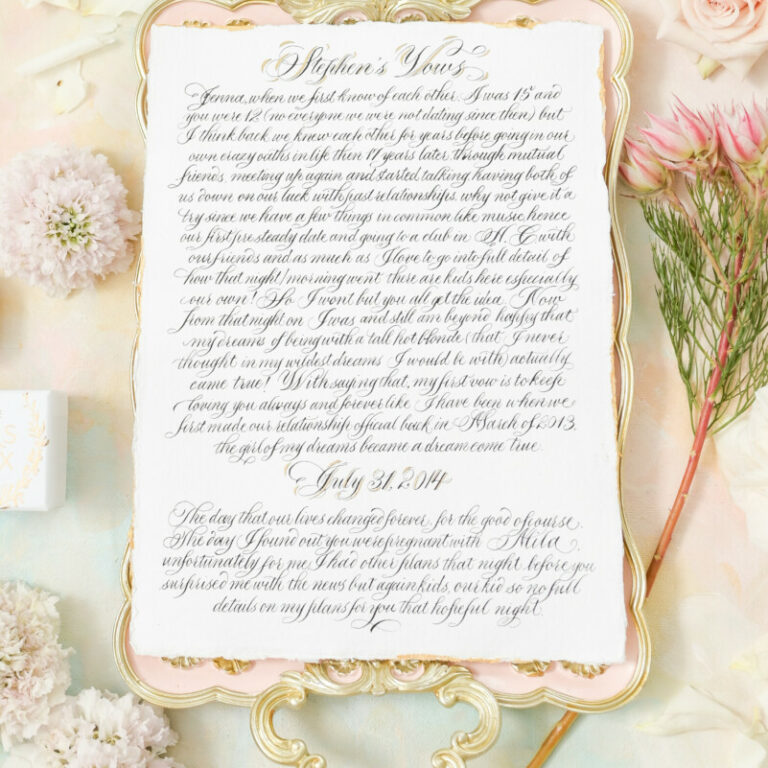 Stephen's Vows
Jenna, when we first know of each other. I was 15 and
you were 12 (no everyone we were not dating since then) but
I think back we knew each other for years before going in our
own crazy oaths in life then 17 years later through mutual
friends, meeting up again and started talking having both of
us down on our luck with past relationships, why not give it a
try since we have a few things in common like music, hence
our first pre steady date and going to a club in H. C with
our friends and as much as I love to go into full detail of
how that night/morning went there are kids here especially
our own! So I wont but you all get the idea. Now
from that night on I was and still am beyond happy that
my dreams of being with a tall hot blonde (that I never
thought in my wildest dreams I would be with) actually
came true! With saying that, my first vow is to keep
loving you always and forever like I have been when we
first made our relationship official back in March of 2013,
the girl of my dreams became a dream come true.
July 31, 2014
The day that our lives changed forever, for the good of course.
The day I found out you were pregnant with Mila,
unfortunately for me, I had other plans that night, before you
surprised me with the news but again kids, our kid so no full
details on my plans for you that hopeful night.
S
X